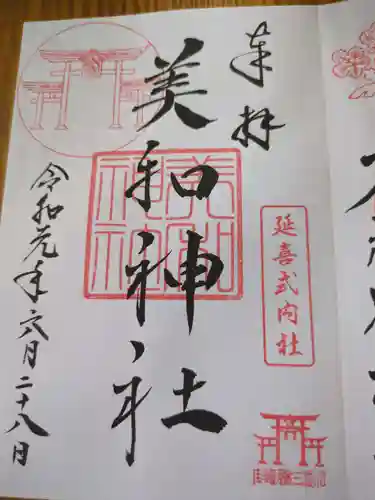 奉拝
延喜式内社
美和神社
美和神社
令和元年六月二十八日